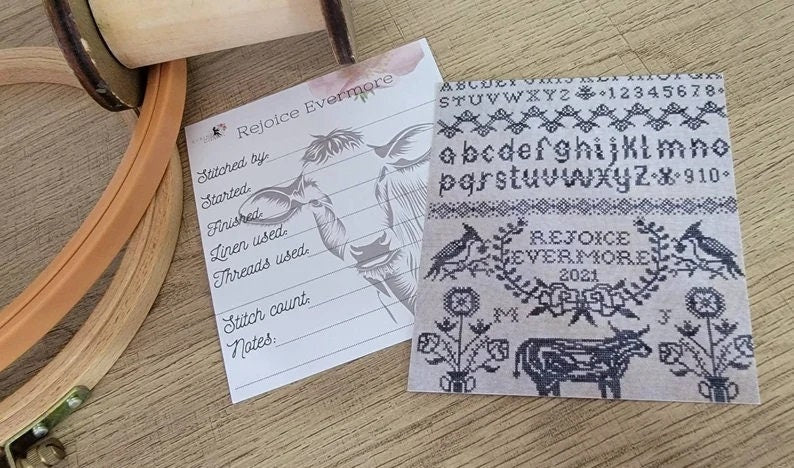 Rejoice Evermore
Stitched by:
Started:
Finished:
Linen used:
Threads used:
Stitch count:
Notes:
STUVWXYZ ·12345678·
abcdefghijklmno
pqrstuvwxyz · 9 10 ·
REJOICE
EVERMORE
2021
M J